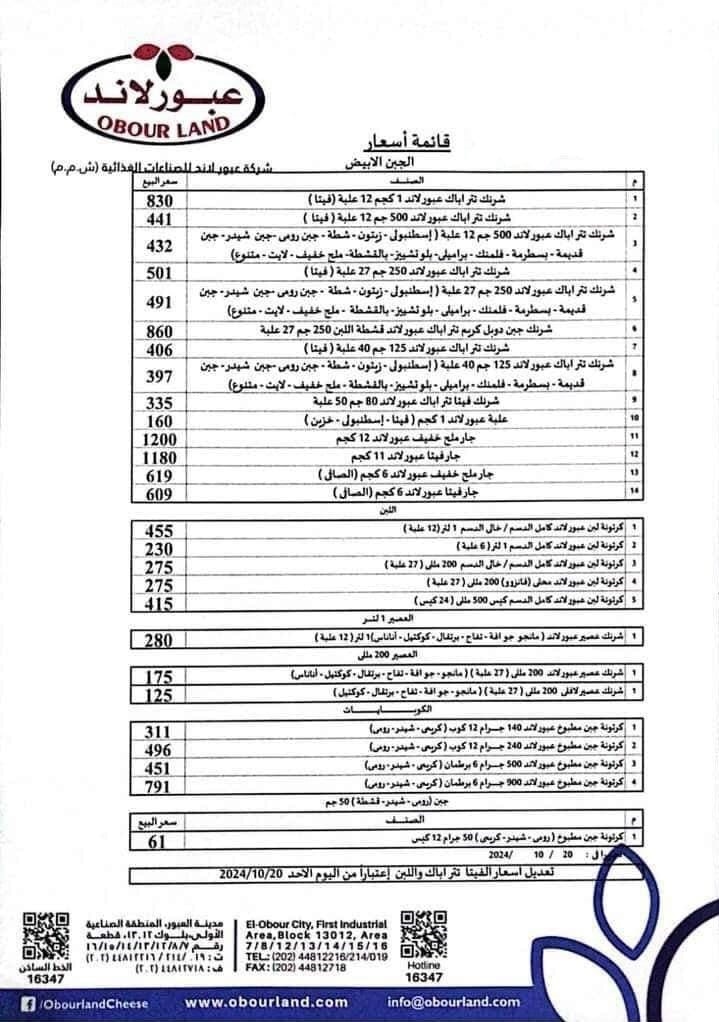 عبورلاند
OBOUR LAND
قائمة أسعار
الجبن الابيض
شركة عبور لاند للصناعات الغذائية (ش.م.م)
م الصنف سعر البيع
1 شرنك تتر اباك عبورلاند 1 كجم 12 علبة (فيتا ) 830
2 شرنك تتر اباك عبورلاند 500 جم 12 علبة (فيتا ) 441
3 شرنك تتر اباك عبورلاند 500 جم 12 علبة ( إسطنبولى - زيتون - شطة - جبن رومى-جبن شيدر-جبن
قديمة - بسطرمة - فلمنك - براميلى- بلو تشييز - بالقشطة- ملح خفيف - لايت - متنوع) 432
4 شرنك تتر اباك عبورلاند 250 جم 27 علبة ( فيتا ) 501
5 شرنك تتر اباك عبورلاند 250 جم 27 علبة ( إسطنبولى - زيتون - شطة - جبن رومى-جبن شيدر-جبن
قديمة - بسطرمة - فلمنك - براميلى - بلو تشييز - بالقشطة - ملح خفيف - لايت - متنوع) 491
6 شرنك جبن دوبل كريم تتر اباك عبورلاند قشطة اللبن 250 جم 27 علبة 860
7 شرنك تتر اباك عبورلاند 125 جم 40 علبة ( فيتا ) 406
8 شرنك تتر اباك عبورلاند 125 جم 40 علبة ( إسطنبولى - زيتون - شطة - جبن رومى-جبن شيدر-جبن
قديمة - بسطرمة - فلمنك - براميلى - بلو تشييز - بالقشطة - ملح خفيف - لايت - متنوع) 397
9 شرنك فيتا تتر اباك عبورلاند 80 جم 50 علبة 335
10 علبة عبورلاند 1 كجم ( فيتا - إسطنبولى - خزين ) 160
11 جار ملح خفيف عبورلاند 12 كجم 1200
12 جار فيتا عبورلاند 11 كجم 1180
13 جار ملح خفيف عبورلاند 6 كجم (الصافى ) 619
14 جار فيتا عبورلاند 6 كجم (الصافى ) 609
اللبن
1 كرتونة لبن عبورلاند كامل الدسم / خالى الدسم 1 لتر(12 علبة ) 455
2 كرتونة لبن عبورلاند كامل الدسم 1 لتر ( 6 علبة ) 230
3 كرتونة لبن عبورلاند كامل الدسم / خالى الدسم 200 مللى ( 27 علبة ) 275
4 كرتونة لبن عبورلاند محلى (فانزوو) 200 مللى ( 27 علبة ) 275
5 كرتونة لبن عبورلاند كامل الدسم كيس 500 مللى ( 24 كيس ) 415
العصير 1 لتر
1 شرنك عصير عبورلاند ( مانجو جوافة - تفاح - برتقال - كوكتيل - أناناس)1 لتر ( 12 علبة ) 280
العصير 200 مللى
1 شرنك عصير عبورلاند 200 مللى ( 27 علبة ) ( مانجو - جوافة - تفاح - برتقال - كوكتيل - أناناس) 175
1 شرنك عصير لافلى 200 مللى ( 27 علبة ) ( مانجو - جوافة - تفاح - برتقال - كوكتيل ) 125
الكوبايات
1 كرتونة جبن مطبوخ عبورلاند 140 جرام 12 كوب ( كريمى - شيدر - رومى) 311
2 كرتونة جبن مطبوخ عبورلاند 240 جرام 12 كوب ( كريمى - شيدر - رومى) 496
3 كرتونة جبن مطبوخ عبورلاند 500 جرام 6 برطمان ( كريمى - شيدر - رومى) 451
4 كرتونة جبن مطبوخ عبورلاند 900 جرام 6 برطمان ( كريمى - شيدر - رومى) 791
جبن (رومى - شيدر - قشطة ) 50 جم
م الصنف سعر البيع
1 كرتونة جبن مطبوخ ( رومى - شيدر - كريمى ) 50 جرام 12 كيس 61
20 / 10 /2024
تعديل اسعار الفيتا تتر اباك واللبن إعتباراً من اليوم الاحد 2024/10/20
مدينة العبور، المنطقة الصناعية
الأولى،بلوك ١٣٠١٢، قطعة
رقم ١٦/١٥/١٤/١٣/١٢/٨/٧
ت : ٠١٩ / ٢١٤ / ٤٤٨١٢٢١٦ (٢٠٢)
ف : ٤٤٨١٢٧١٨ (٢٠٢)
الخط الساخن
16347
El-Obour City, First Industrial
Area,Block 13012, Area
7/8/12/13/14/15/16
TEL.: (202) 44812216/214/019
FAX: (202) 44812718
Hotline
16347
f /ObourlandCheese
www.obourland.com
info@obourland.com